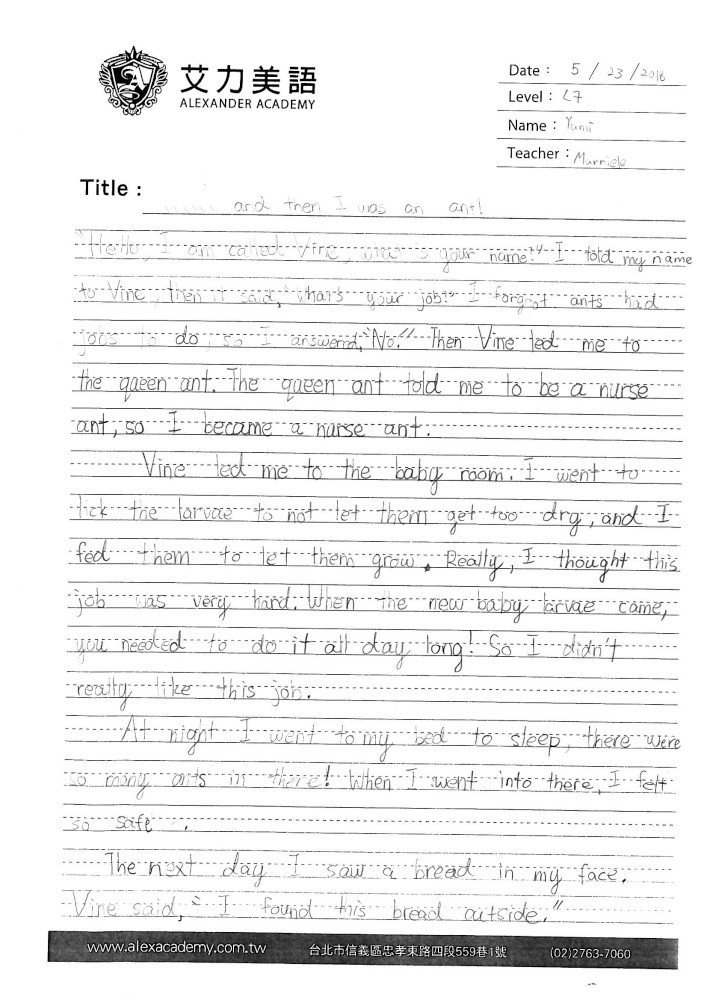 艾力美語
ALEXANDER ACADEMY
Date : 5 / 23 / 2016
Level : L7
Name : Yumi
Teacher :
Title :
...... and then I was an ant!
"Hello, I am called Vine, what's your name?" I told my name
to Vine, then it said, "What's your job?" I forgot ants had
jobs to do, so I answered, "No." Then Vine led me to
the queen ant. The queen ant told me to be a nurse
ant, so I became a nurse ant.
Vine led me to the baby room. I went to
lick the larvae to not let them get too dry, and I
fed them to let them grow. Really, I thought this
job was very hard. When the new baby larvae came,
you needed to do it all day long! So I didn't
really like this job.
At night I went to my bed to sleep, there were
so many ants in there! When I went into there, I felt
so safe.
The next day I saw a bread in my face.
Vine said, "I found this bread outside."
www.alexacademy.com.tw 台北市信義區忠孝東路四段559巷1號 (02)2763-7060